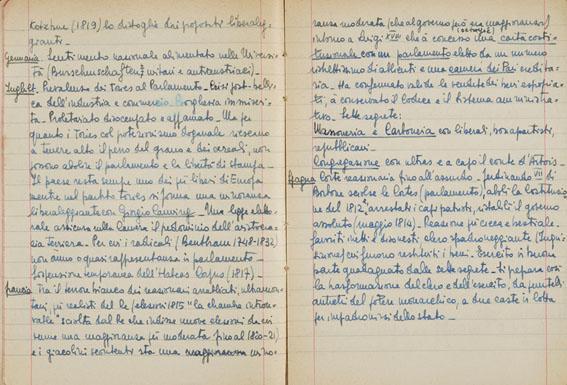 Kotzbue (1819) lo distoglie dai propositi liberaleg-
gianti_
Germania. Sentimento nazionale alimentato nelle Universi-
tà (Burschenschaften) unitari e antiaustriaci_
Inghilt. Prevalenza dei tories al Parlamento_ Crisi post-belli-
ca dell'industria e commercio. Borghesia immiseri-
ta_ Proletariato disoccupato e affamato_ Ma per
quanto i tories col protezionismo doganale riescano
a tenere alto il peso del grano e dei cereali, non
osano abolire il parlamento e la libertà di stampa_
Il paese resta sempre uno dei più liberi di Europa
mentre nel partito tories si forma una minoranza
liberaleggiante con Giorgio Canning_ Una legge eletto-
rale assicura nella camera il predominio dell'aristocra-
zia terriera_ Per cui i radicali (Bentham 1748-1832)
non anno o quasi rappresentanza in parlamento_
Sospensione temporanea dell'Habeas Corpus (1817)_
Francia Tra il terrore bianco dei reazionari arrabbiati, ultramon-
tani, più realisti del Re (elezioni 1815 "la chambre introu-
vable" sciolta dal Re che indisse nuove elezioni da cui
venne una maggioranza più moderata fino al 1820-21)
e i giacobini scontenti sta una maggioranza mino-
ranza moderata (che al governo può in maggioranza)
intorno a Luigi XVIII che à concesso una carta costi-
tuzionale con un parlamento eletto da un numero
ristrettissimo di abbienti e una camera dei Pari eredita-
ria_ Ha confermato valide le vendite dei beni espropria-
ti, à conservato il Codice e il sistema amministra-
tivo_ Sette segrete:
Massoneria e Carboneria con liberali, bonapartisti,
repubblicani_
Congregazione con ultras e a capo il conte d'Artois_
Spagna Corte reazionaria fino all'assurdo_ Ferdinando VII di
Borbone sciolse le Cortes (parlamento), abolì la Costituzio-
ne del 1812, arrestati i capi patrioti, ristabilì il governo
assoluto (maggio 1814)_ Reazione più cieca e bestiale_
Favoriti inetti e disonesti, clero spadroneggiante (Inqui-
sizione) cui furono restituiti i beni_ Esercito in buona
parte guadagnato dalle sette segrete_ Si prepara così
la trasformazione del clero e dell'esercito, da puntelli
antichi del potere monarchico, a due caste in lotta
per impadronirsi dello stato_